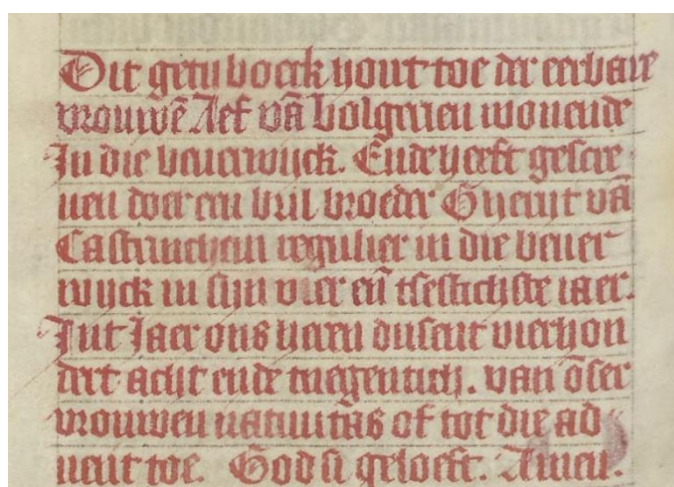 Dit getijboeck hout toe der eerbare
vrouwē Aef vā bolgerien wonende
In die beuerwijck. Ende heeft gescre
uen doer een bruer broeder Gherijt vā
Castrinchem regulier in die beuer
wijck in sijn vier eñ tsestichste iaer.
Int Jaer ons heren dusent vierhon
dert acht ende tnegentich. van ōser
vrouwen natiuitas of tot die ad
uent toe. God si geloeft. Amen.